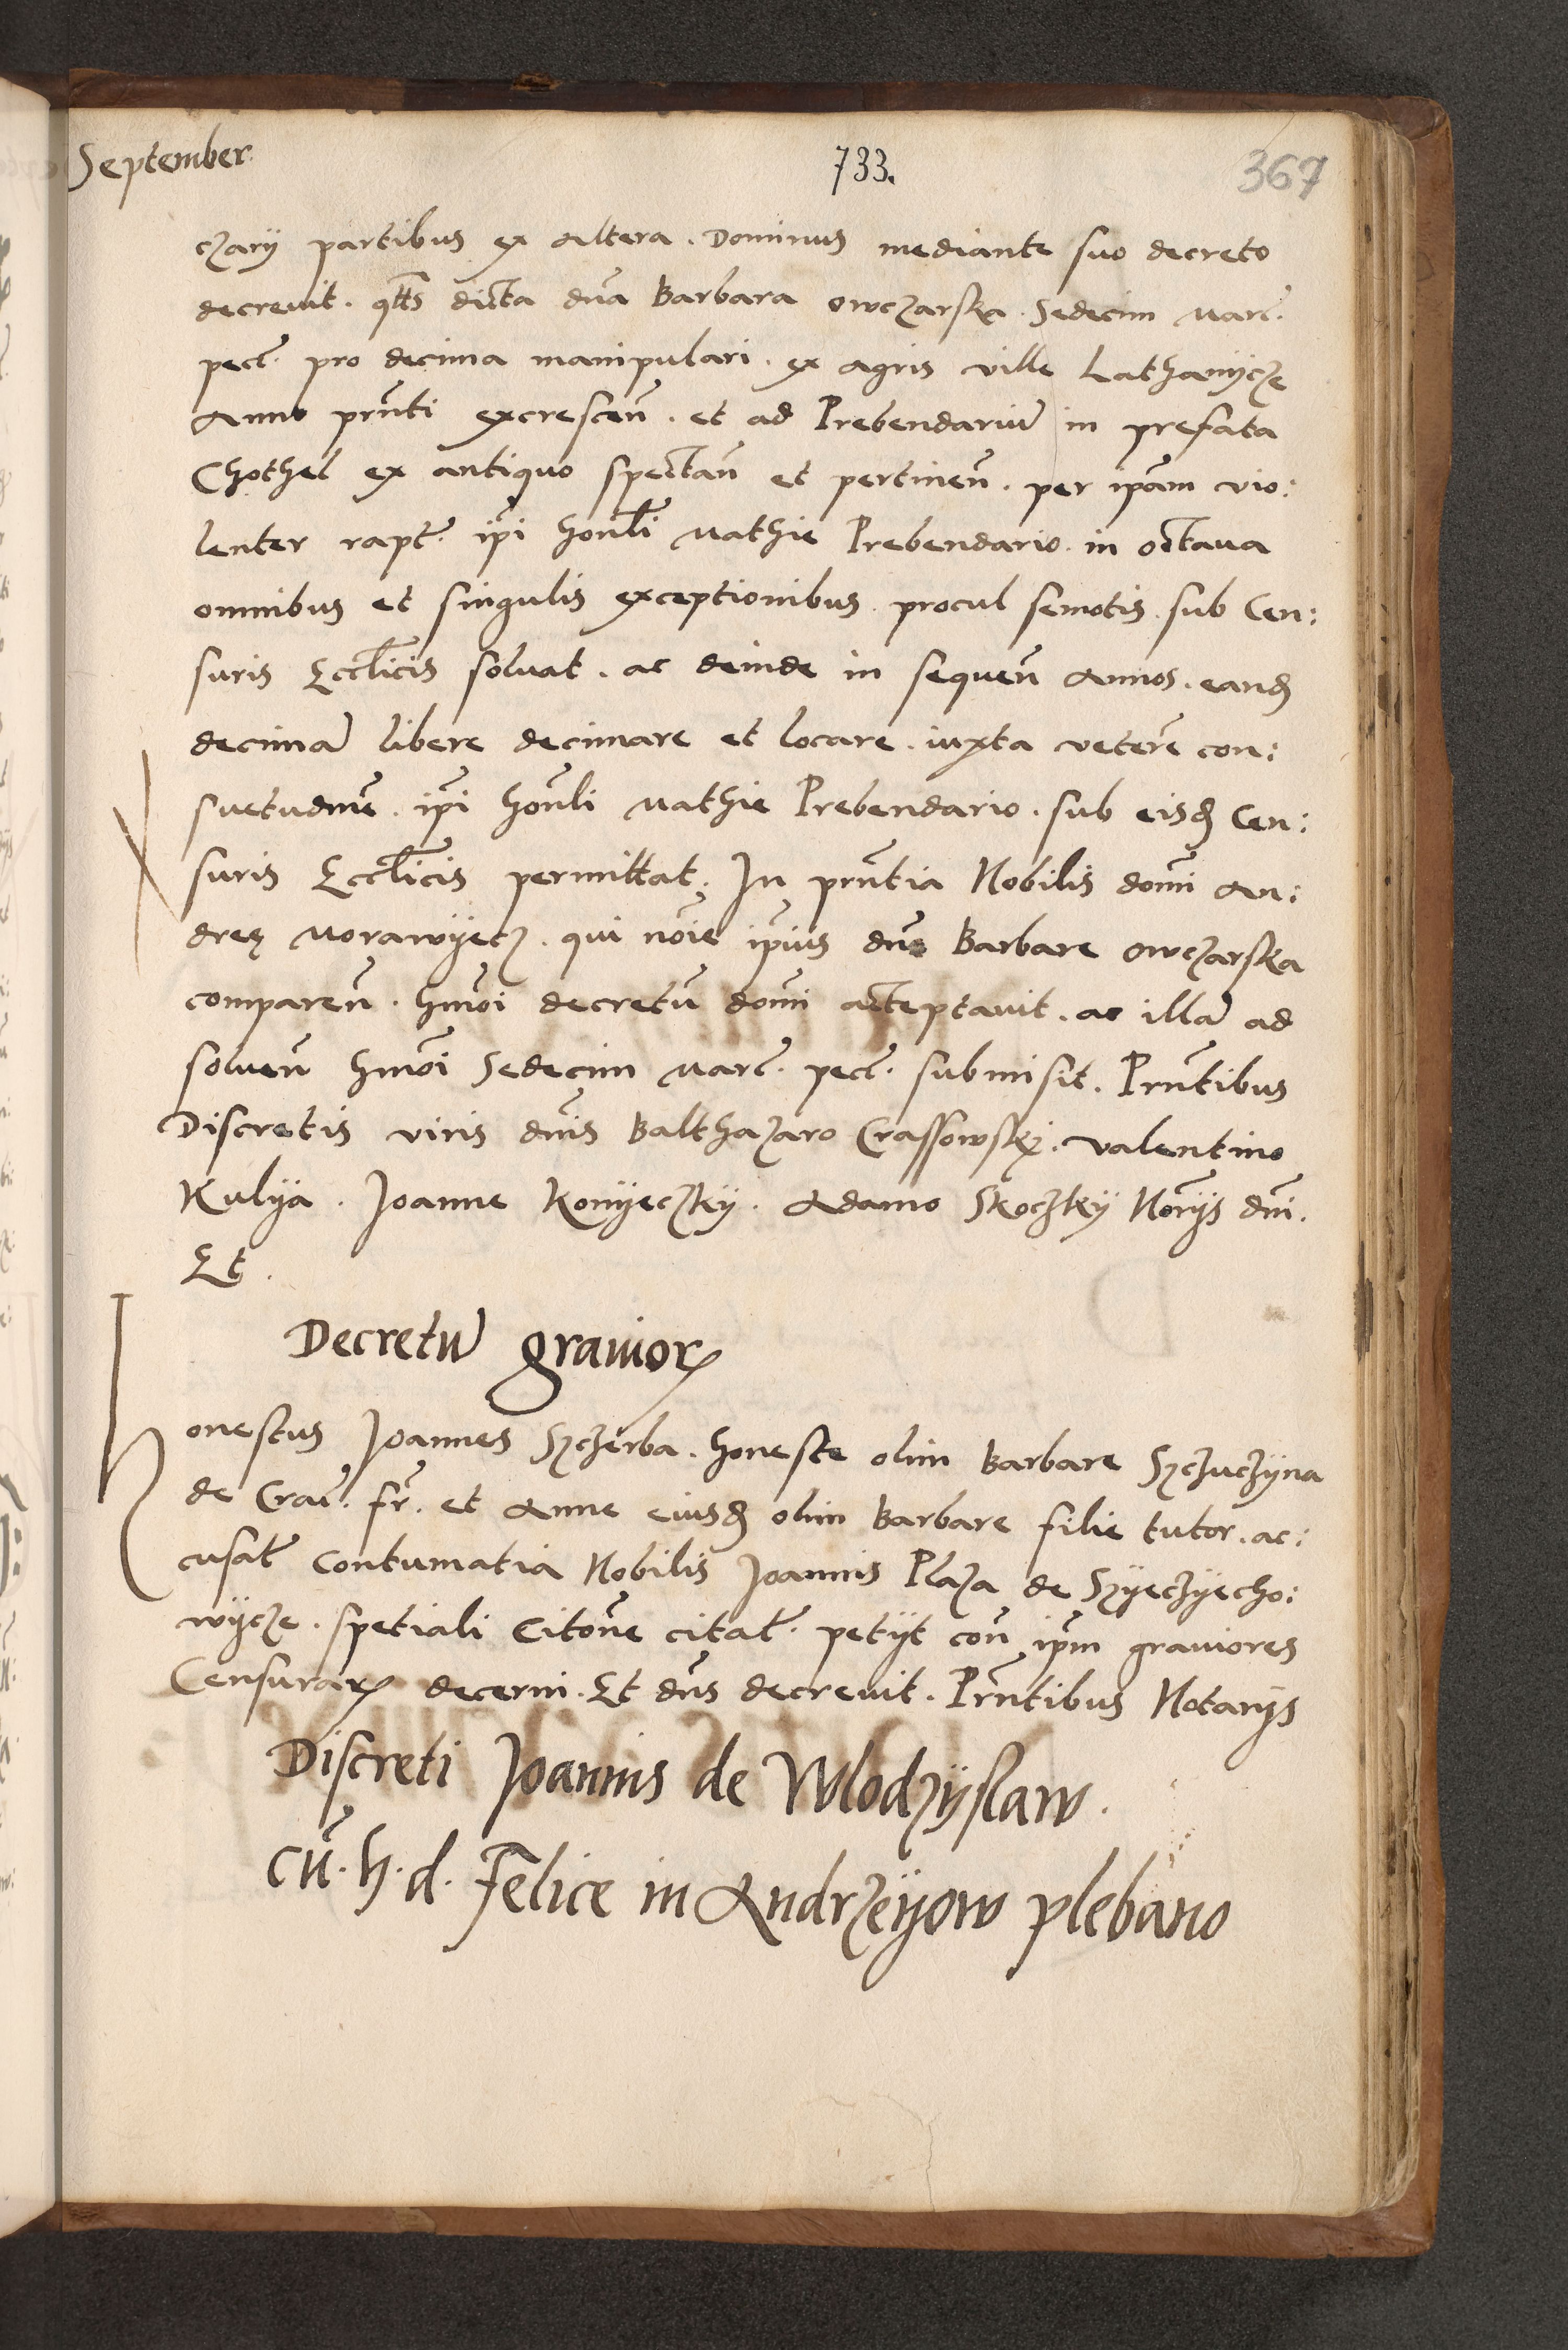 September 733. 367
czarij partibus ex altera. Dominus mediante suo decreto
decreuit. qtts dicta dna Barbara Owczarska. Sedecim Marc.
pecc. pro decima manipulari. ex agris ville Lathanijcze
Anno prnti excrescen. et ad Prebendariu in prefata
Chothel ex antiquo spectan et pertinen. per ipam vio:
lenter rapt. ipi honbli Mathie Prebendario. in octaua
omnibus et singulis exceptionibus. procul semotis. sub Cen:
suris Eccl'icis soluat. ac deinde in sequen Annos. eand
decima libere decimare et locare. iuxta vetere con:
suetudine. ipi honbli Mathie Prebendario. sub eisd Cen:
suris Eccl'icis permittat. In prntia Nobilis domi An:
dreę Morawijecz. qui noie ipius dne Barbare Owczarska
comparen. hmoi decretu domi acceptauit. ac illa ad
soluen hmoi Sedecim Marc. pecc. submisit. Prntibus
Discretis viris dnis Balthazaro Crassowskj. Valentino
Kulija. Joanne Konijeczkij. Adamo Skoczkij Norijs dni.
Et.
Decretu grauior
Honestus Joannes Sczerba. honeste olim Barbare Sczuczijna
de Crac. fr. et Anne eiusd olim Barbare filie tutor. ac:
cusat Contumatia Nobilis Joannis Plaza de Szijeczijecho:
wijcze. spetiali Citone citat. petijt con ipm grauiores
Censurar decerni. Et dns decreuit. Prntibus Notarijs
Discreti Joannis de Wlodzijslaw.
cu. h. d. Felice in Andrzeijow plebano